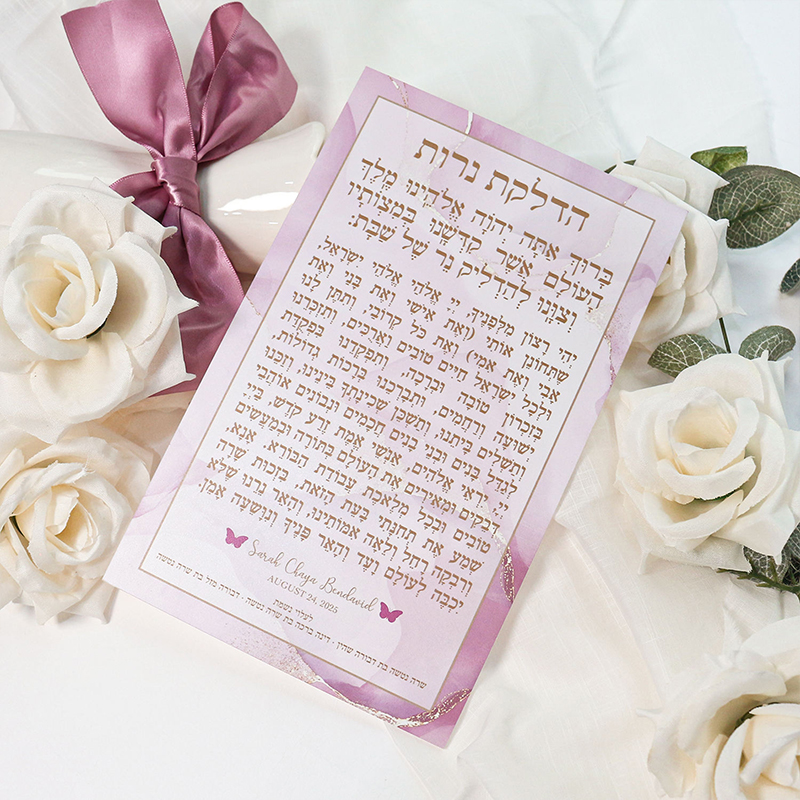 הדלקת נרות
בָּרוּךְ אַתָּה יְהֹוָה אֱלֹהֵינוּ מֶלֶךְ
הָעוֹלָם אֲשֶׁר קִדְּשָׁנוּ בְּמִצְוֹתָיו
וְצִוָּנוּ לְהַדְלִיק נֵר שֶׁל שַׁבָּת:
יְהִי רָצוֹן מִלְּפָנֶיךָ, יְיָ אֱלֹהַי אֱלֹהֵי יִשְׂרָאֵל,
שֶׁתְּחוֹנֵן אוֹתִי (וְאֶת אִישִׁי וְאֶת בָּנַי וְאֶת
אָבִי וְאֶת אִמִּי) וְאֶת כָּל קְרוֹבַי, וְתִתֵּן לָנוּ
וּלְכָל יִשְׂרָאֵל חַיִּים טוֹבִים וַאֲרוּכִים, וְתִזְכְּרֵנוּ
בְּזִכְרוֹן טוֹבָה וּבְרָכָה, וְתִפְקְדֵנוּ בִּפְקֻדַּת
יְשׁוּעָה וְרַחֲמִים, וּתְבָרְכֵנוּ בְּרָכוֹת גְּדוֹלוֹת,
וְתַשְׁלִים בָּתֵּינוּ, וְתַשְׁכֵּן שְׁכִינָתְךָ בֵּינֵינוּ, וְזַכֵּנוּ
לְגַדֵּל בָּנִים וּבְנֵי בָנִים חֲכָמִים וּנְבוֹנִים אוֹהֲבֵי
יְיָ, יִרְאֵי אֱלֹהִים, אַנְשֵׁי אֱמֶת זֶרַע קֹדֶשׁ, בַּייָ
דְּבֵקִים וּמְאִירִים אֶת הָעוֹלָם בְּתוֹרָה וּבְמַעֲשִׂים
טוֹבִים וּבְכָל מְלֶאכֶת עֲבוֹדַת הַבּוֹרֵא. אָנָּא,
שְׁמַע אֶת תְּחִנָּתִי בָּעֵת הַזֹּאת, בִּזְכוּת שָׂרָה
וְרִבְקָה רָחֵל וְלֵאָה אִמּוֹתֵינוּ, וְהָאֵר נֵרֵנוּ שֶׁלֹּא
יִכְבֶּה לְעוֹלָם וָעֶד וְהָאֵר פָּנֶיךָ וְנִוָּשֵׁעָה אָמֵן.
Sarah Chaya Bendavid
AUGUST 24, 2025
לעלוי נשמת
שרה נטשה בת דבורה שרין · דינה ברכה בת שרה נטשה · דבורה מזל בת שרה נטשה